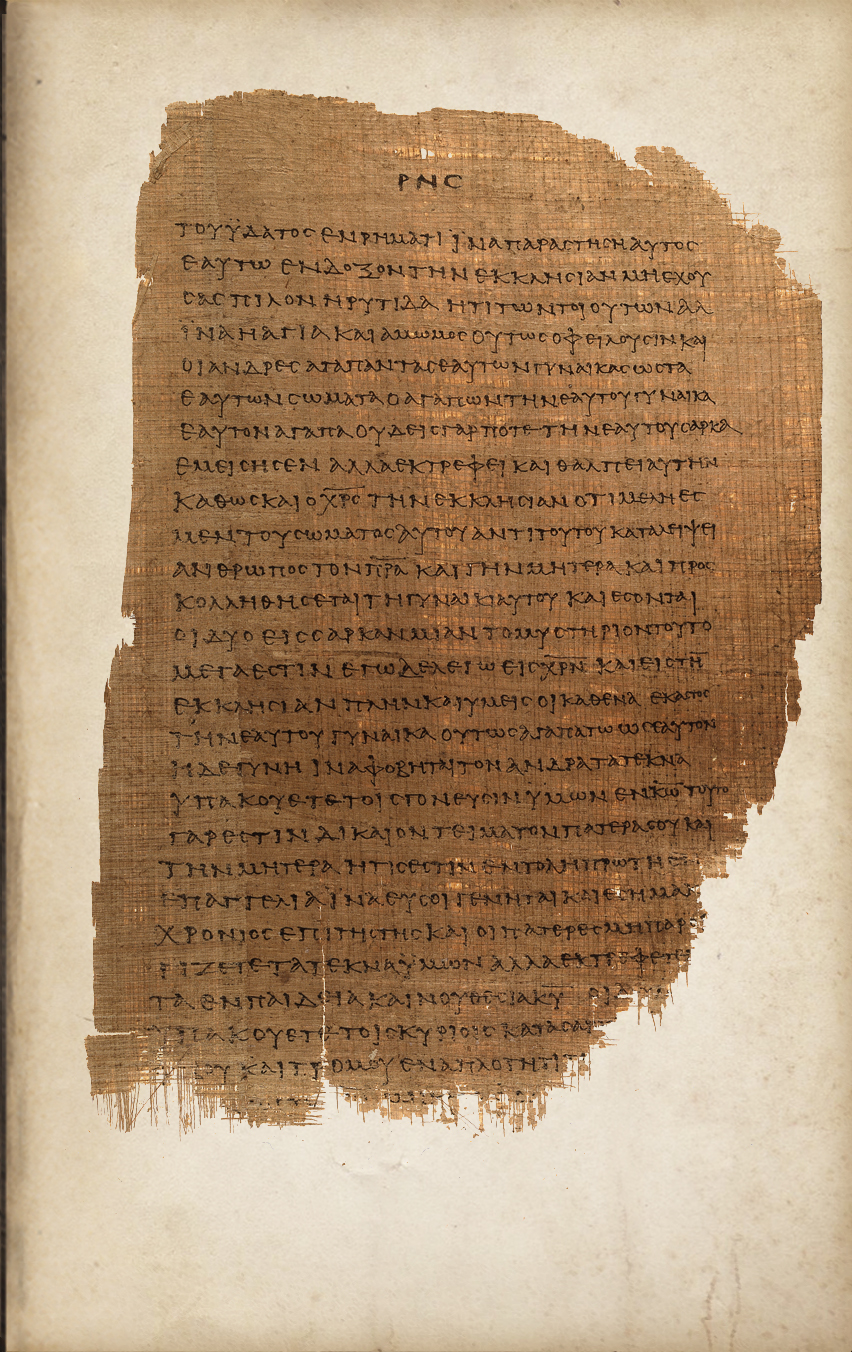 ΡΝϚ
ΤΟΥΫΔΑΤΟϹ ΕΝΡΗΜΑΤΙ ΪΝΑΠΑΡΑϹΤΗϹΗΑΥΤΟϹ
ΕΑΥΤΩ ΕΝΔΟΞΟΝΤΗΝ ΕΚΚΛΗϹΙΑΝΜΗΕΧΟΥ
ϹΑϹΠΙΛΟΝ ΗΡΥΤΙΔΑ ΗΤΙΤΩΝΤΟΙΟΥΤΩΝΑΛ
ΪΝΑΗΑΓΙΑΚΑΙΑΜΩΜΟϹ ΟΥΤΩϹΟΦΕΙΛΟΥϹΙΝΚΑΙ
ΟΙΑΝΔΡΕϹ ΑΓΑΠΑΝΤΑϹΕΑΥΤΩΝΓΥΝΑΙΚΑϹΩϹΤΑ
ΕΑΥΤΩΝϹΩΜΑΤΑΟΑΓΑΠΩΝΤΗΝΕΑΥΤΟΥΓΥΝΑΙΚΑ
ΕΑΥΤΟΝΑΓΑΠΑΟΥΔΕΙϹΓΑΡΠΟΤΕΤΗΝΕΑΥΤΟΥϹΑΡΚΑ
ΕΜΕΙϹΗϹΕΝ ΑΛΛΑΕΚΤΡΕΦΕΙ ΚΑΙ ΘΑΛΠΕΙΑΥΤΗΝ
ΚΑΘΩϹΚΑΙΟΧ̅Ρ̅Ϲ̅ ΤΗΝΕΚΚΛΗϹΙΑΝ ΟΤΙΜΕΛΗΕϹ
ΜΕΝΤΟΥϹΩΜΑΤΟϹΑΥΤΟΥΑΝΤΙΤΟΥΤΟΥΚΑΤΑΛΕΙΨΕΙ
ΑΝΘΡΩΠΟϹΤΟΝΠ̅Ρ̅Α̅ ΚΑΙΤΗΝΜΗΤΕΡΑΚΑΙΠΡΟϹ
ΚΟΛΛΗΘΗϹΕΤΑΙΤΗΓΥΝΑΙΚΙΑΥΤΟΥ ΚΑΙΕϹΟΝΤΑΙ
ΟΙΔΥΟΕΙϹϹΑΡΚΑΝΜΙΑΝ ΤΟΜΥϹΤΗΡΙΟΝΤΟΥΤΟ
ΜΕΓΑΕϹΤΙΝ ΕΓΩΔΕΛΕΓΩΕΙϹΧ̅Ρ̅Ν̅ ΚΑΙΕΙϹΤΗ̅
ΕΚΚΛΗϹΙΑΝ ΠΛΗΝΚΑΙΥΜΕΙϹΟΙΚΑΘΕΝΑ ΕΚΑϹΤΟϹ
ΤΗΝΕΑΥΤΟΥΓΥΝΑΙΚΑ ΟΥΤΩϹΑΓΑΠΑΤΩΩϹΕΑΥΤΟΝ
ΗΔΕΓΥΝΗ ΙΝΑΦΟΒΗΤΑΙΤΟΝΑΝΔΡΑΤΑΤΕΚΝΑ
ΥΠΑΚΟΥΕΤΕΤΟΙϹΓΟΝΕΥϹΙΝΥΜΩΝ ΕΝΚ̅Ω̅ΤΟΥΤΟ
ΓΑΡΕϹΤΙΝ ΔΙΚΑΙΟΝΤΕΙΜΑΤΟΝΠΑΤΕΡΑϹΟΥΚΑΙ
ΤΗΝΜΗΤΕΡΑ ΗΤΙϹΕϹΤΙΝ ΕΝΤΟΛΗΠΡΩΤΗ
ΕΠΑΓΓΕΛΙΑΙΝΑΕΥϹΟΙΓΕΝΗΤΑΙΚΑΙΕϹΗΜΑΚ
ΧΡΟΝΙΟϹΕΠΙΤΗϹΓΗϹΚΑΙ ΟΙΠΑΤΕΡΕϹΜΗΠΑΡ
ΓΙΖΕΤΕΤΑΤΕΚΝΑΥΜΩΝ ΑΛΛΑΕΚΤΡΕΦΕΤΕ
ΤΑΕΝΠΑΙΔΕΙΑΚΑΙΝΟΥΘΕϹΙΑΚ̅Υ̅
ΥΠΑΚΟΥΕΤΕΤΟΙϹΚΥΡΙΟΙϹ ΚΑΤΑϹΑΡ
ΟΥ ΚΑΙΤΡΟΜΟΥ ΕΝΑΠΛΟΤΗΤΙ